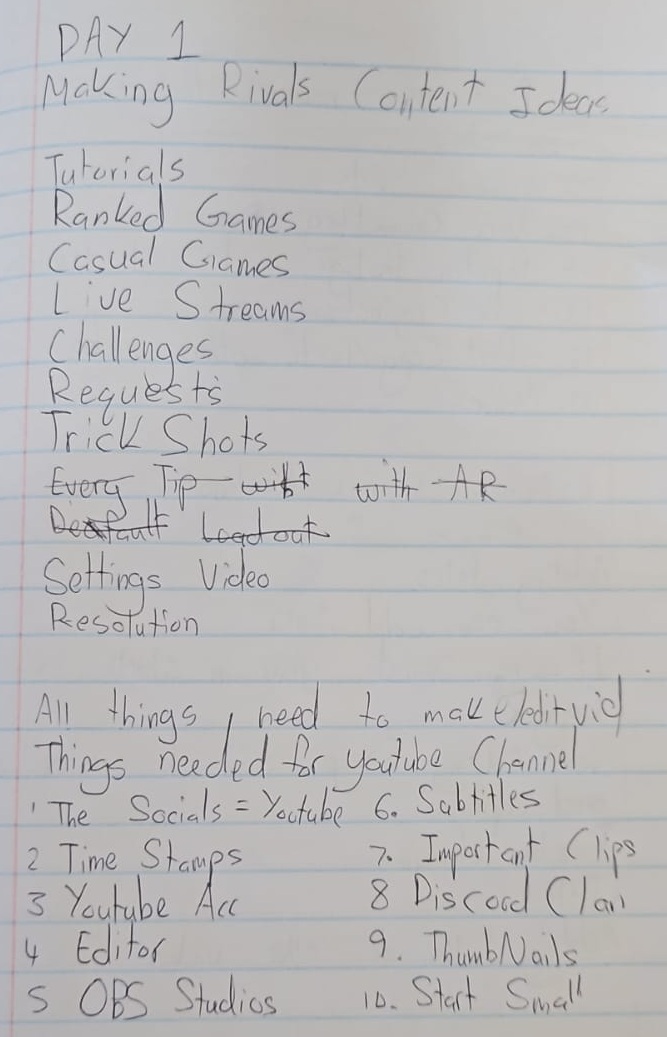 DAY 1
Making Rivals Content Ideas
Tutorials
Ranked Games
Casual Games
Live Streams
Challenges
Requests
Trick Shots
Every Tip with with AR
Deafault Loadout
Settings Video
Resolution
All things I need to make/edit vid
Things needed for youtube Channel
1 The Socials = Youtube 6. Subtitles
2 Time Stamps 7. Important Clips
3 Youtube Acc 8 Discord Clan
4 Editor 9. ThumbNails
5 OBS Studios 10. Start Small